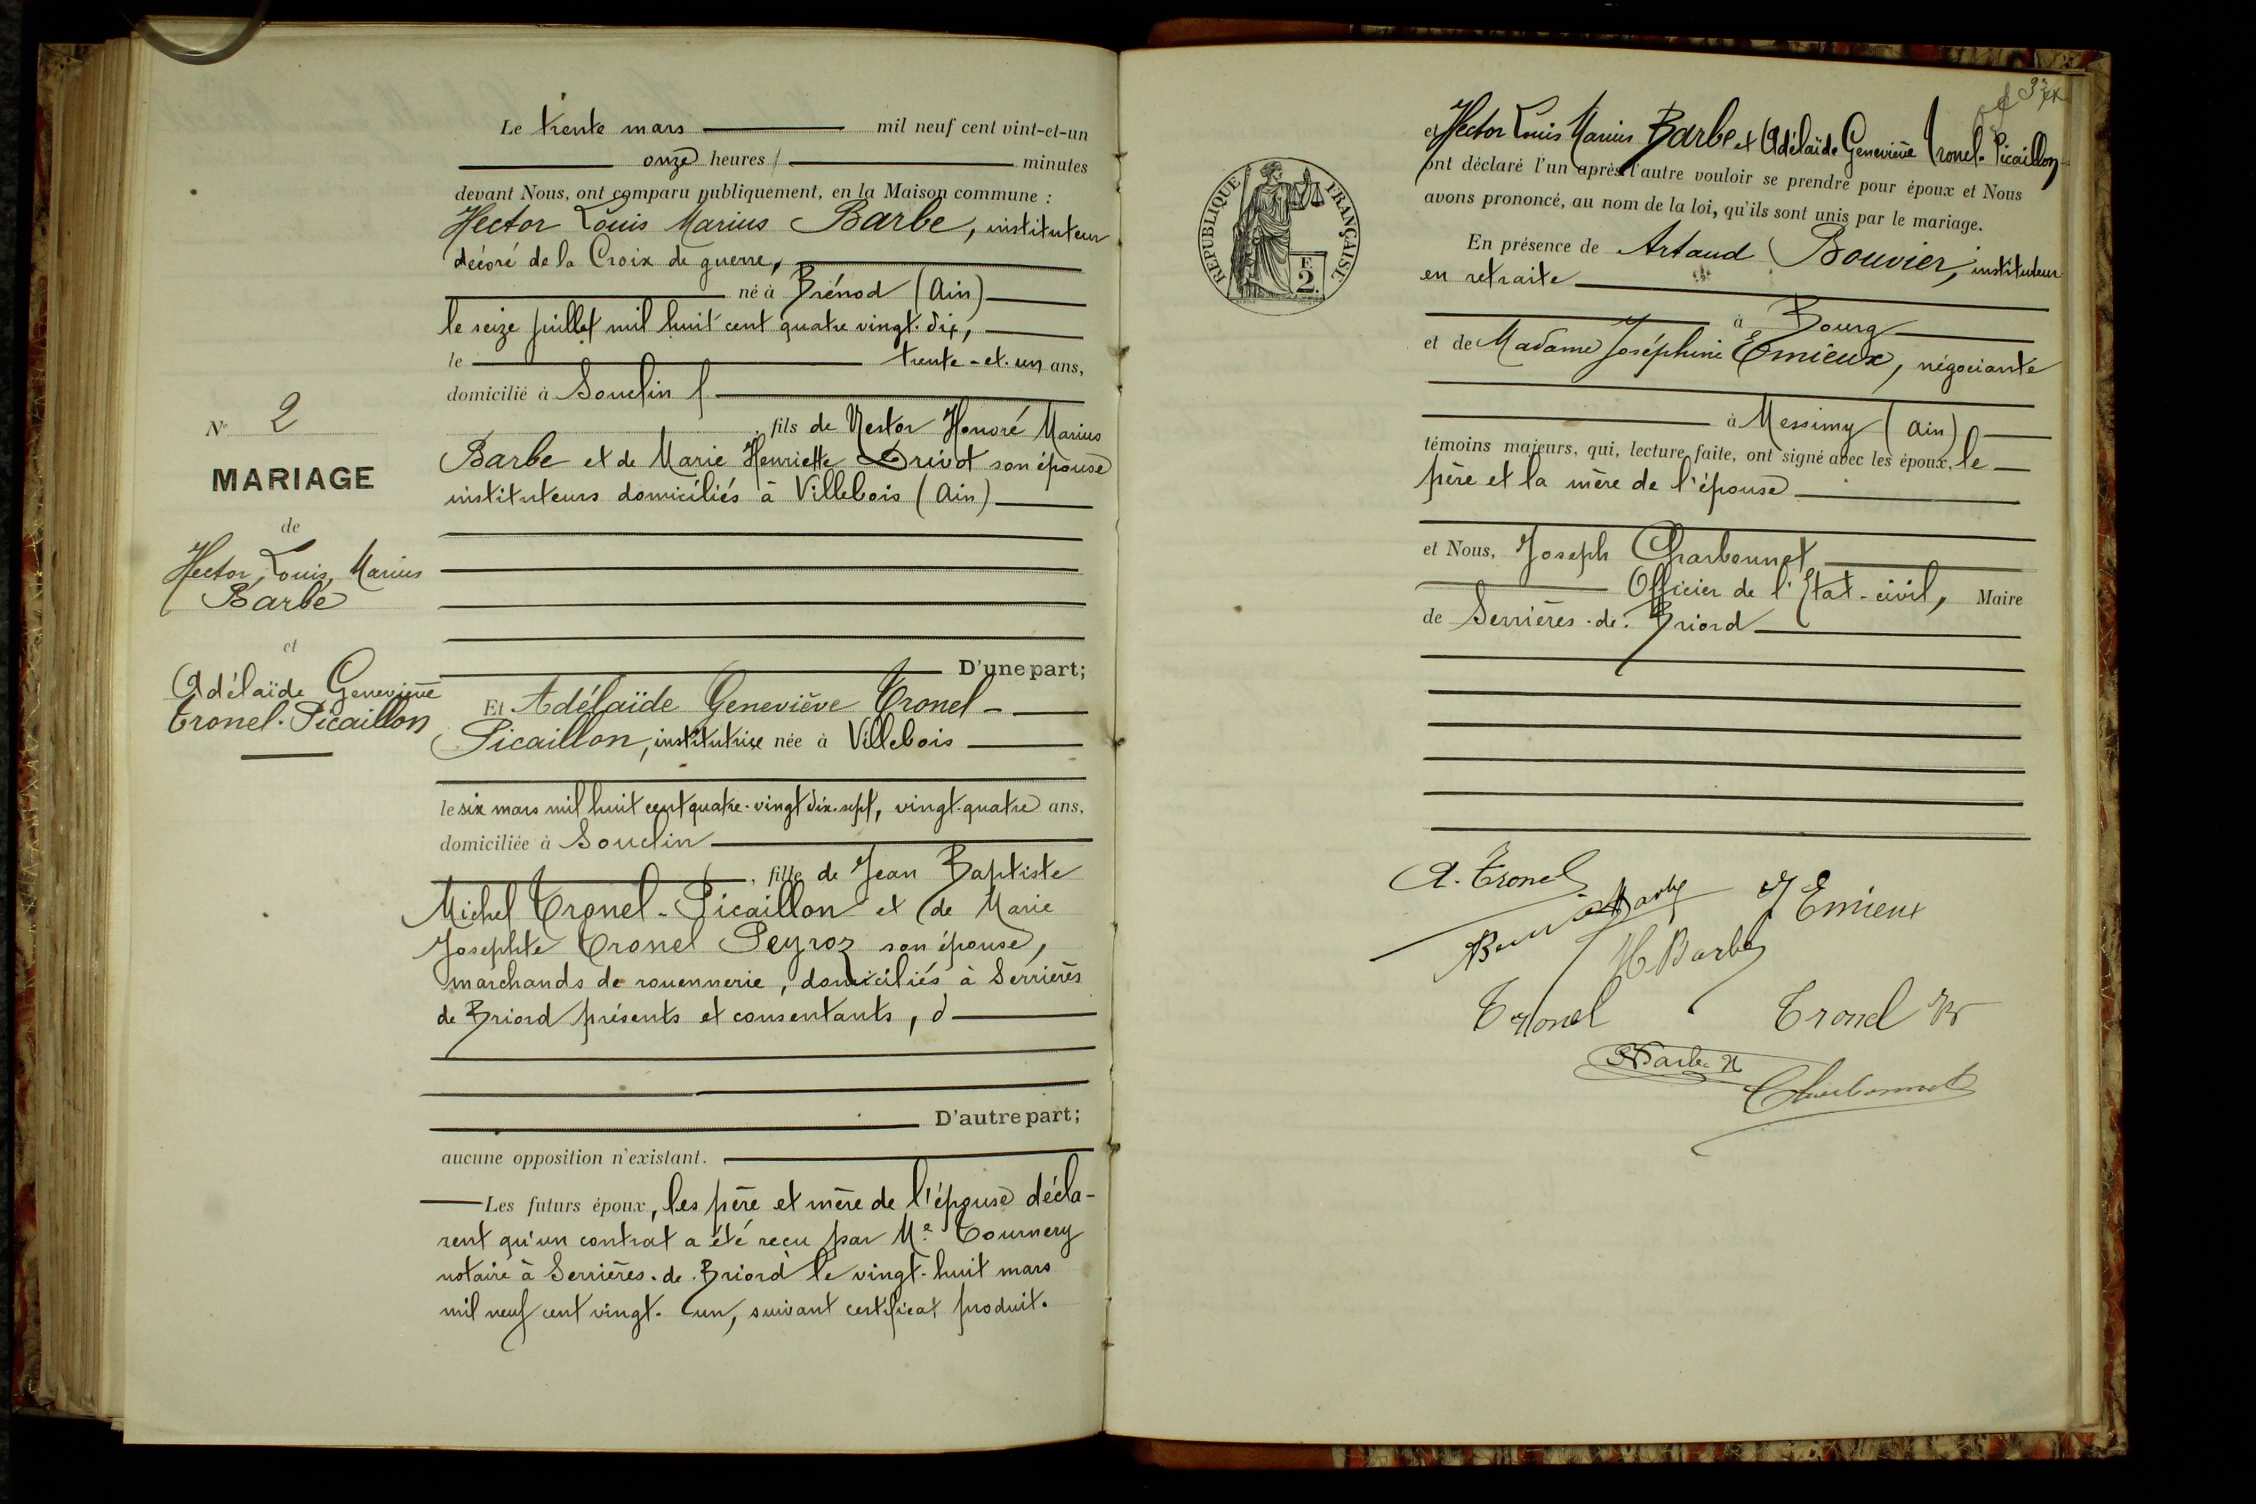 Le trente mars mil neuf cent vint-et-un
onze heures / minutes
devant Nous, ont comparu publiquement, en la Maison commune :
Hector Louis Marius Barbe, instituteur
décoré de la Croix de guerre,
né à Brénod (Ain)
le seize juillet mil huit cent quatre vingt-dix,
le trente-et-un ans,
domicilié à Souclin
fils de Nestor Honoré Marius
Barbe et de Marie Henriette Drivot son épouse
instituteurs domiciliés à Villebois (Ain)
D'une part;
Et Adélaïde Geneviève Tronel-
Picaillon, institutrice née à Villebois
le six mars mil huit cent quatre-vingt dix-sept, vingt-quatre ans,
domiciliée à Souclin
, fille de Jean Baptiste
Michel Tronel-Picaillon et de Marie
Josephte Tronel Peyroz son épouse,
marchands de rouennerie, domiciliés à Serrières
de Briord présents et consentants, d
D'autre part;
aucune opposition n'existant.
Les futurs époux, les père et mère de l'épouse décla-
rent qu'un contrat a été reçu par Me Tournery
notaire à Serrières-de-Briord le vingt-huit mars
mil neuf cent vingt-un, suivant certificat produit.
No 2
MARIAGE
de
Hector, Louis, Marius
Barbe
et
Adélaïde Geneviève
Tronel-Picaillon
et Hector Louis Marius Barbe et Adélaïde Geneviève Tronel-Picaillon
ont déclaré l'un après l'autre vouloir se prendre pour époux et Nous
avons prononcé, au nom de la loi, qu'ils sont unis par le mariage.
RÉPUBLIQUE FRANÇAISE
F.
2.
En présence de Artaud Bouvier, instituteur
en retraite
à Bourg
et de Madame Joséphine Emieux, négociante
à Messimy (Ain)
témoins majeurs, qui, lecture faite, ont signé avec les époux, le
père et la mère de l'épouse
et Nous, Joseph Charbonnet
Officier de l'Etat-civil, Maire
de Serrières-de-Briord
A. Tronel
J Emieux
H Barbe
Tronel
Tronel
Charbonnet